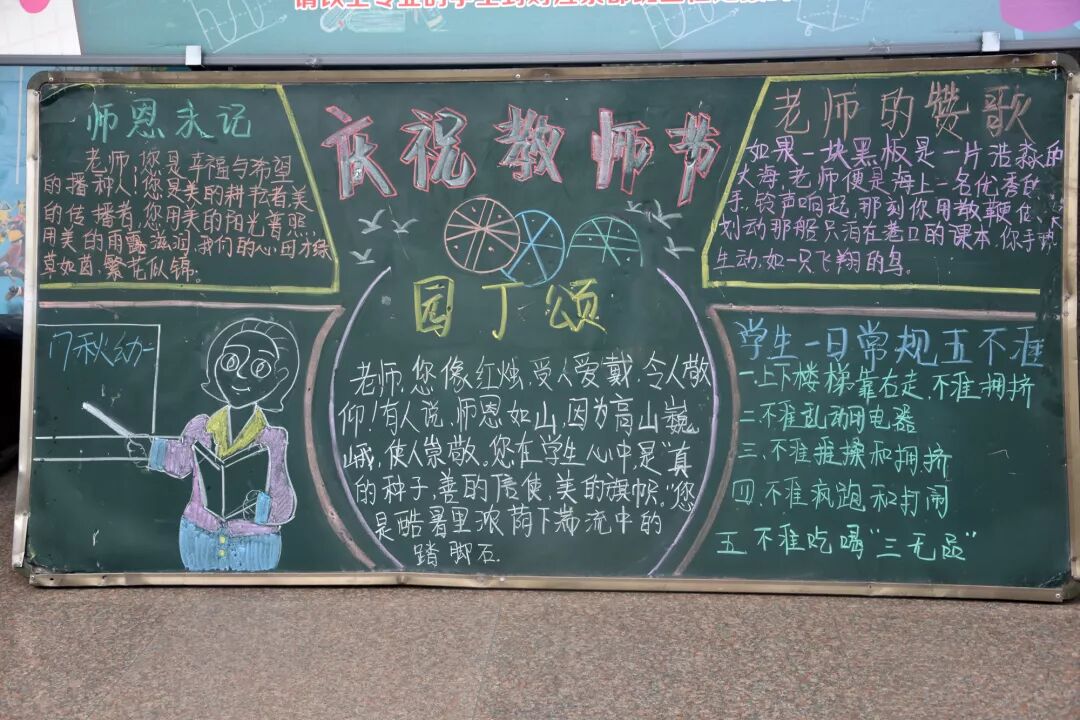 庆祝教师节
师恩未记
老师!您是幸福与希望
的播种人!您是美的耕耘者,美
的传播者,您用美的阳光普照,
用美的雨露滋润,我们的心田才绿
草如茵,繁花似锦。
老师的赞歌
如果一块黑板是一片浩淼的
大海,老师便是海上一名优秀的
手,铃声响起,那刻你用教鞭
划动那船只泊在港口的课本,你手
生动,如一只飞翔的鸟。
园丁颂
老师,您像红烛,受人爱戴,令人敬
仰!有人说,师恩如山,因为高山巍
峨,使人崇敬。您在学生心中,是"真
的种子,善的信使,美的旗帜。"您
是酷暑里浓荫下湍流中的
踏脚石.
17秋幼一
学生一日常规五不准
一.上下楼梯靠右走,不准拥挤
二.不准乱动用电器
三.不准推搡和拥挤
四.不准疯跑和打闹
五.不准吃喝"三无品"